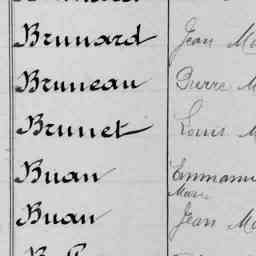 Brunard Jean
Bruneau Pierre
Brunet Louis
Buan
Marie
Buan Jean